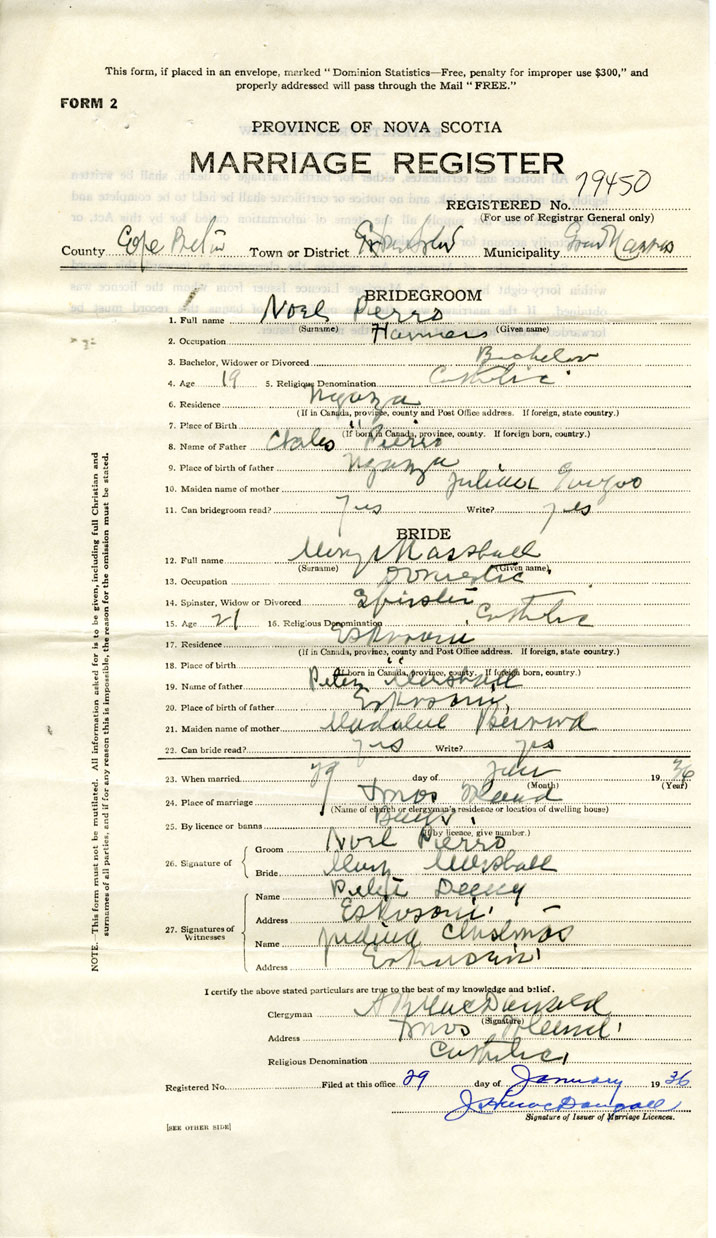 This form, if placed in an envelope, marked "Dominion Statistics—Free, penalty for improper use $300," and
properly addressed will pass through the Mail "FREE."
FORM 2
PROVINCE OF NOVA SCOTIA
MARRIAGE REGISTER
REGISTERED No. 79450
(For use of Registrar General only)
County Cape Breton Town or District Municipality
BRIDEGROOM
1. Full name Noel Pierro
(Surname) (Given name)
2. Occupation
3. Bachelor, Widower or Divorced Bachelor
4. Age 19 5. Religious Denomination Catholic
6. Residence Nyanza
(If in Canada, province, county and Post Office address. If foreign, state country.)
7. Place of Birth "
(If born in Canada, province, county. If foreign born, country.)
8. Name of Father Charles Pierro
9. Place of birth of father Nyanza
10. Maiden name of mother
11. Can bridegroom read? yes Write? yes
BRIDE
12. Full name Mary Marshall
(Surname) (Given name)
13. Occupation Domestic
14. Spinster, Widow or Divorced Spinster
15. Age 21 16. Religious Denomination Catholic
17. Residence Eskasoni
(If in Canada, province, county and Post Office address. If foreign, state country.)
18. Place of birth "
(If born in Canada, province, county. If foreign born, country.)
19. Name of father Peter Marshall
20. Place of birth of father Eskasoni
21. Maiden name of mother Bernard
22. Can bride read? yes Write? yes
23. When married 29 day of Jan 1936
(Month) (Year)
24. Place of marriage
(Name of church or clergyman's residence or location of dwelling house)
25. By licence or banns Banns
(If by licence, give number.)
26. Signature of { Groom Noel Pierro
Bride Mary Marshall
27. Signatures of Witnesses { Name
Address Eskasoni
Name Christmas
Address Eskasoni
I certify the above stated particulars are true to the best of my knowledge and belief.
Clergyman MacDonald
(Signature)
Address
Religious Denomination Catholic
Registered No. Filed at this office 29 day of January 1936
MacDougall
Signature of Issuer of Marriage Licences.
[SEE OTHER SIDE]
NOTE.—This form must not be mutilated. All information asked for is to be given, including full Christian and
surnames of all parties, and if for any reason this is impossible, the reason for the omission must be stated.